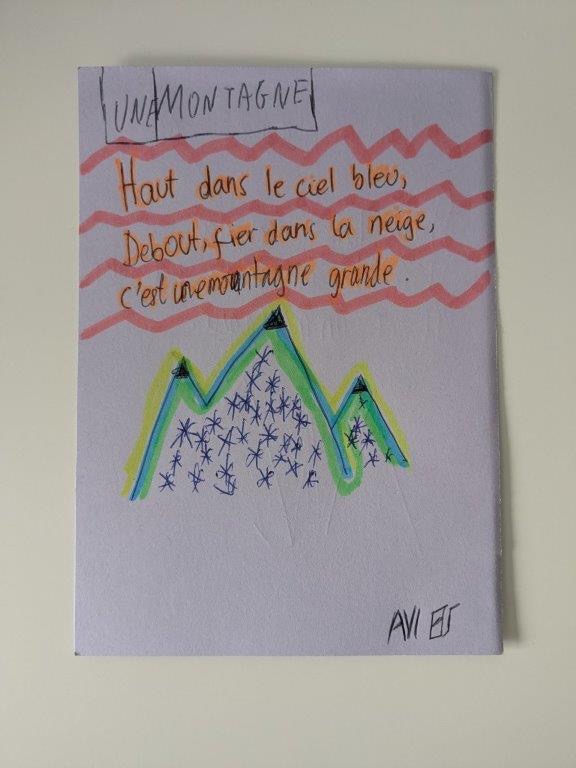 UNE MONTAGNE
Haut dans le ciel bleu,
Debout, fier dans la neige,
c'est une montagne grande.
AVI